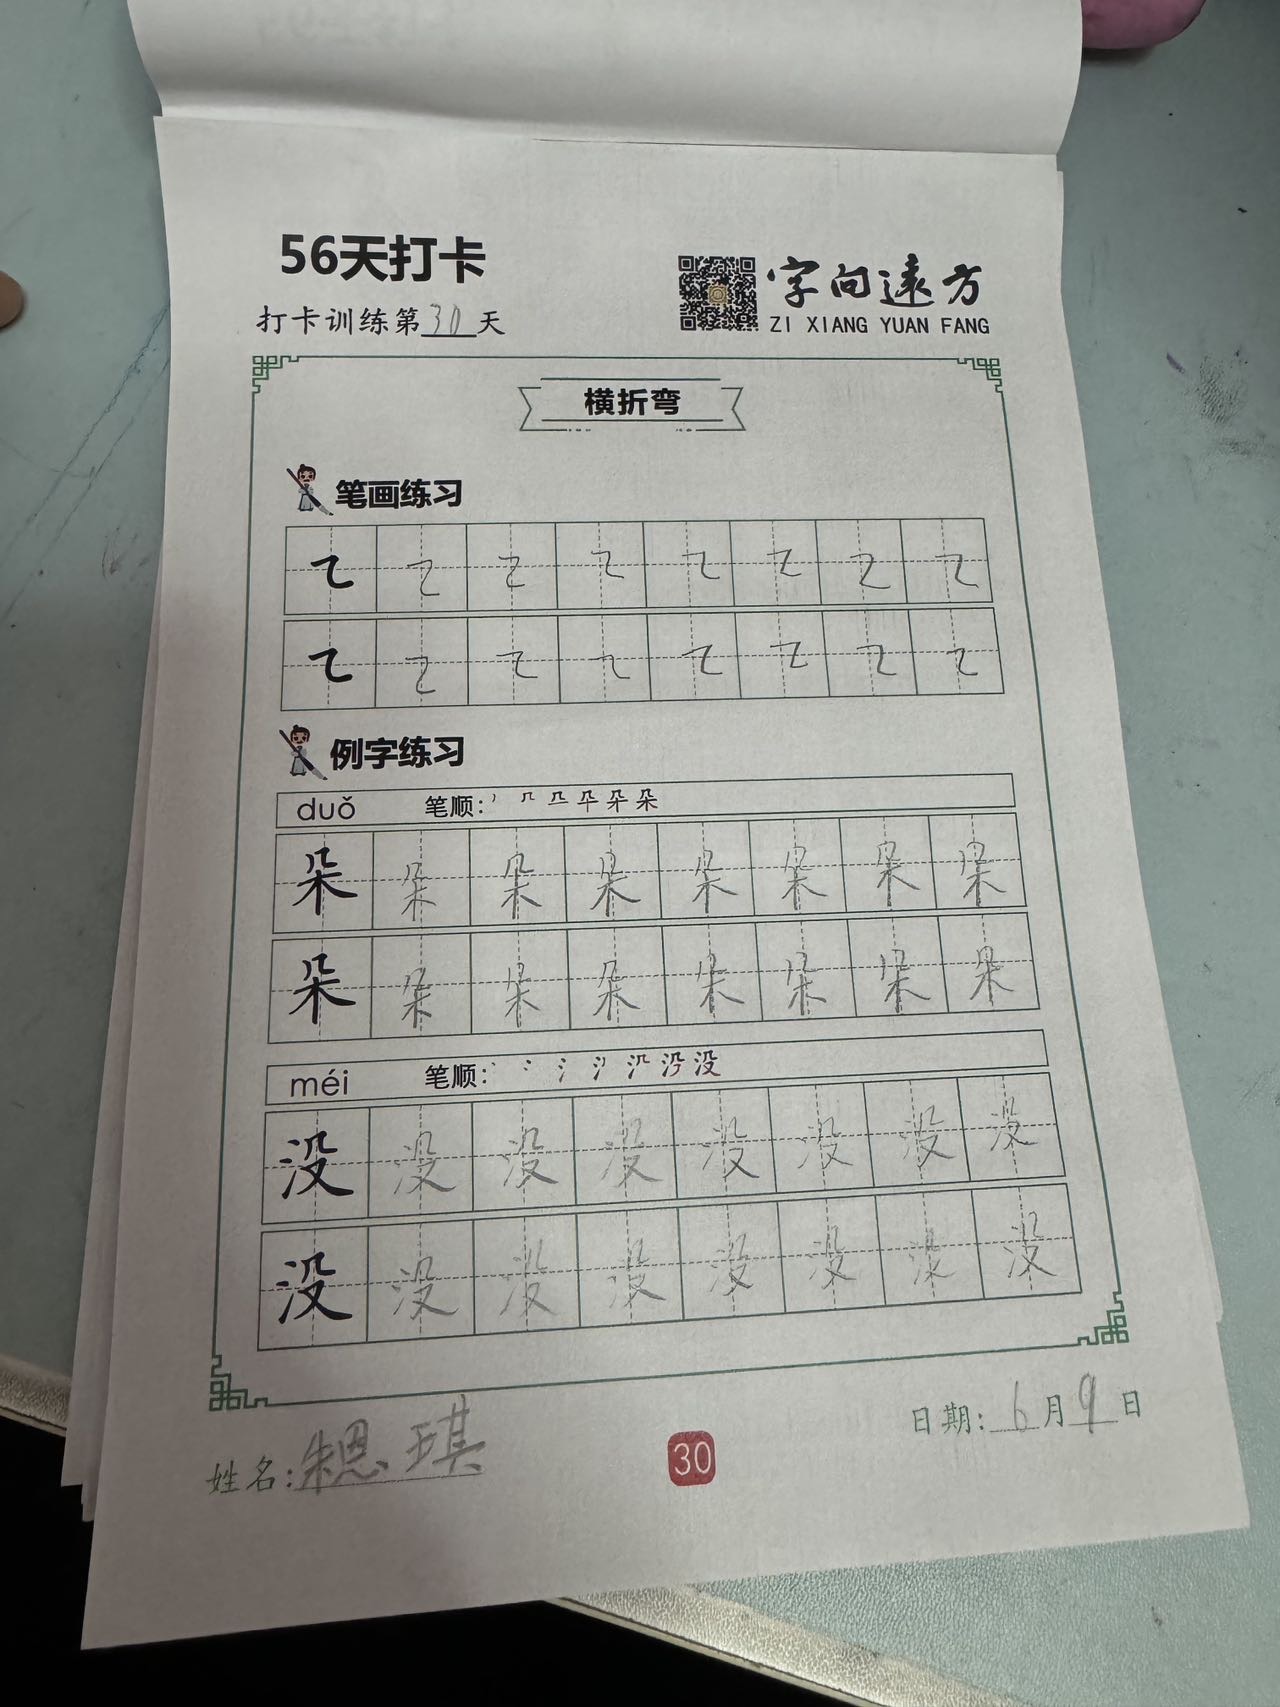 56天打卡
打卡训练第30天
字向遠方
ZI XIANG YUAN FANG
横折弯
笔画练习
㇍ ㇍ ㇍ ㇍ ㇍ ㇍ ㇍ ㇍
㇍ ㇍ ㇍ ㇍ ㇍ ㇍ ㇍ ㇍
例字练习
duǒ 笔顺:
朵 朵 朵 朵 朵 朵 朵 朵
朵 朵 朵 朵 朵 朵 朵 朵
méi 笔顺:
没 没 没 没 没 没 没 没
没 没 没 没 没 没 没 没
姓名:朱恩琪
30
日期:6月9日